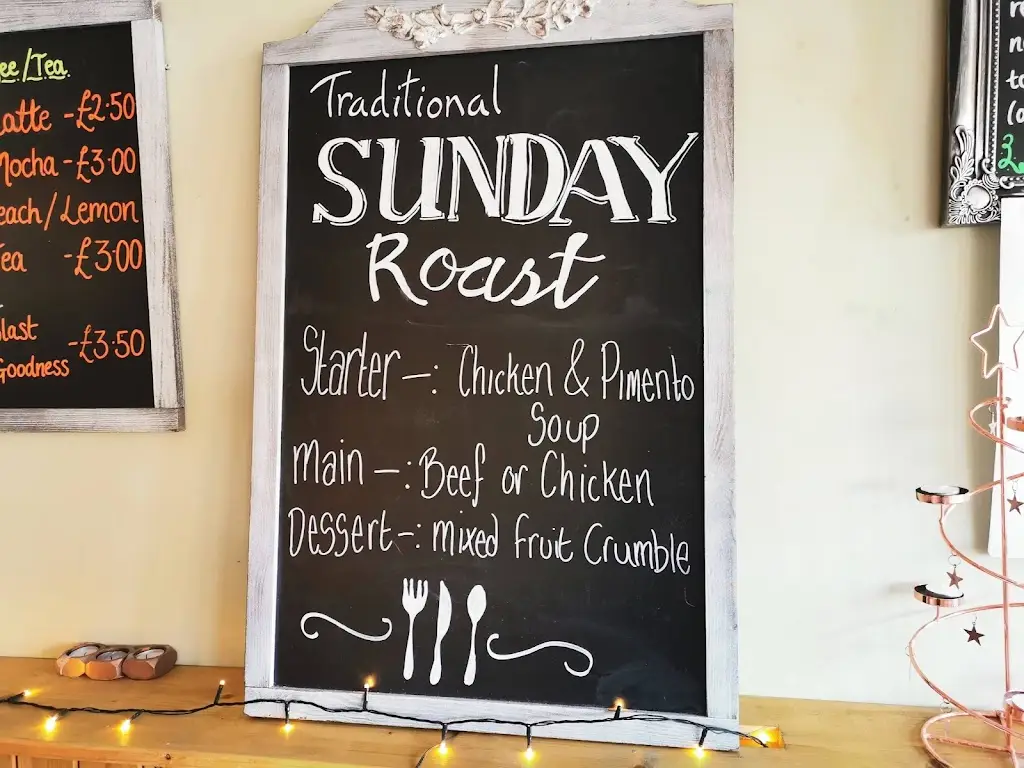 Tea
£2.50
£3.00
Lemon
Tea - £3.00
- £3.50
Goodness
Traditional
SUNDAY
Roast
Starter -: Chicken & Pimento
Soup
Main -: Beef or Chicken
Dessert -: Mixed Fruit Crumble